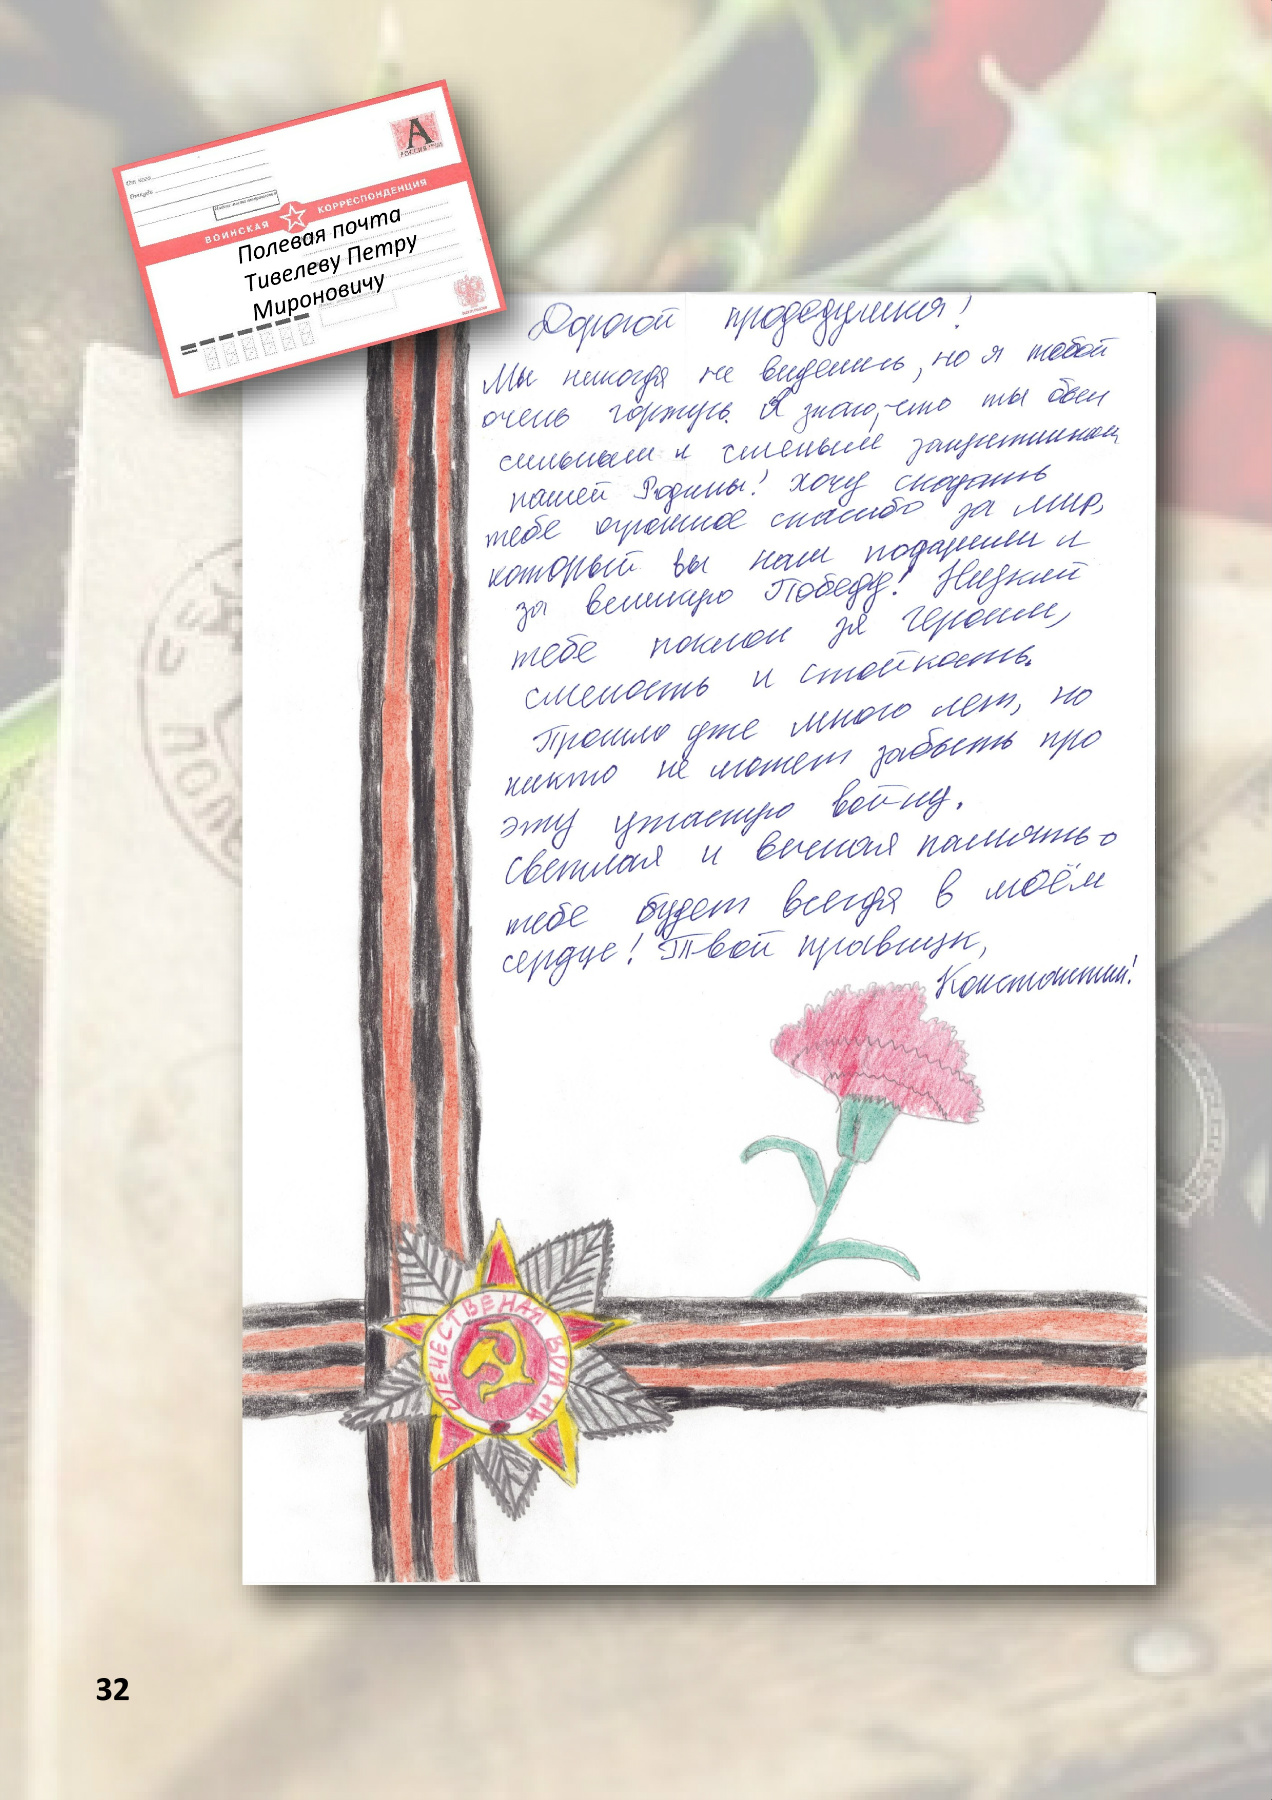 От кого
Откуда
А
РОССИЯ
ВОИНСКАЯ КОРРЕСПОНДЕНЦИЯ
Полевая почта
Тивелеву Петру
Мироновичу
Дорогой прадедушка!
Мы никогда не виделись, но я тобой
очень горжусь. Я знаю, что ты был
сильным и смелым защитником
нашей Родины! Хочу сказать
тебе огромное спасибо за мир,
который вы нам подарили и
за великую Победу! Низкий
тебе поклон за героизм,
смелость и стойкость.
Прошло уже много лет, но
никто не может забыть про
эту ужасную войну.
Светлая и вечная память о
тебе будет всегда в моём
сердце! Твой правнук,
Константин!
ОТЕЧЕСТВЕННАЯ ВОЙНА
32